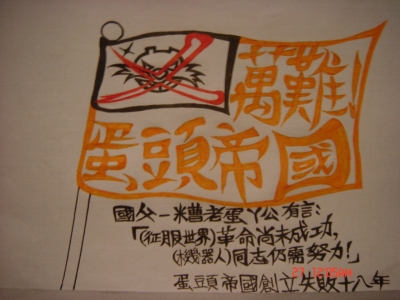 萬難!
蛋頭帝國
國父－糟老蛋丫公有言:
「(征服世界)革命尚未成功,
(機器人)同志仍需努力!」
蛋頭帝國創立失敗十八年